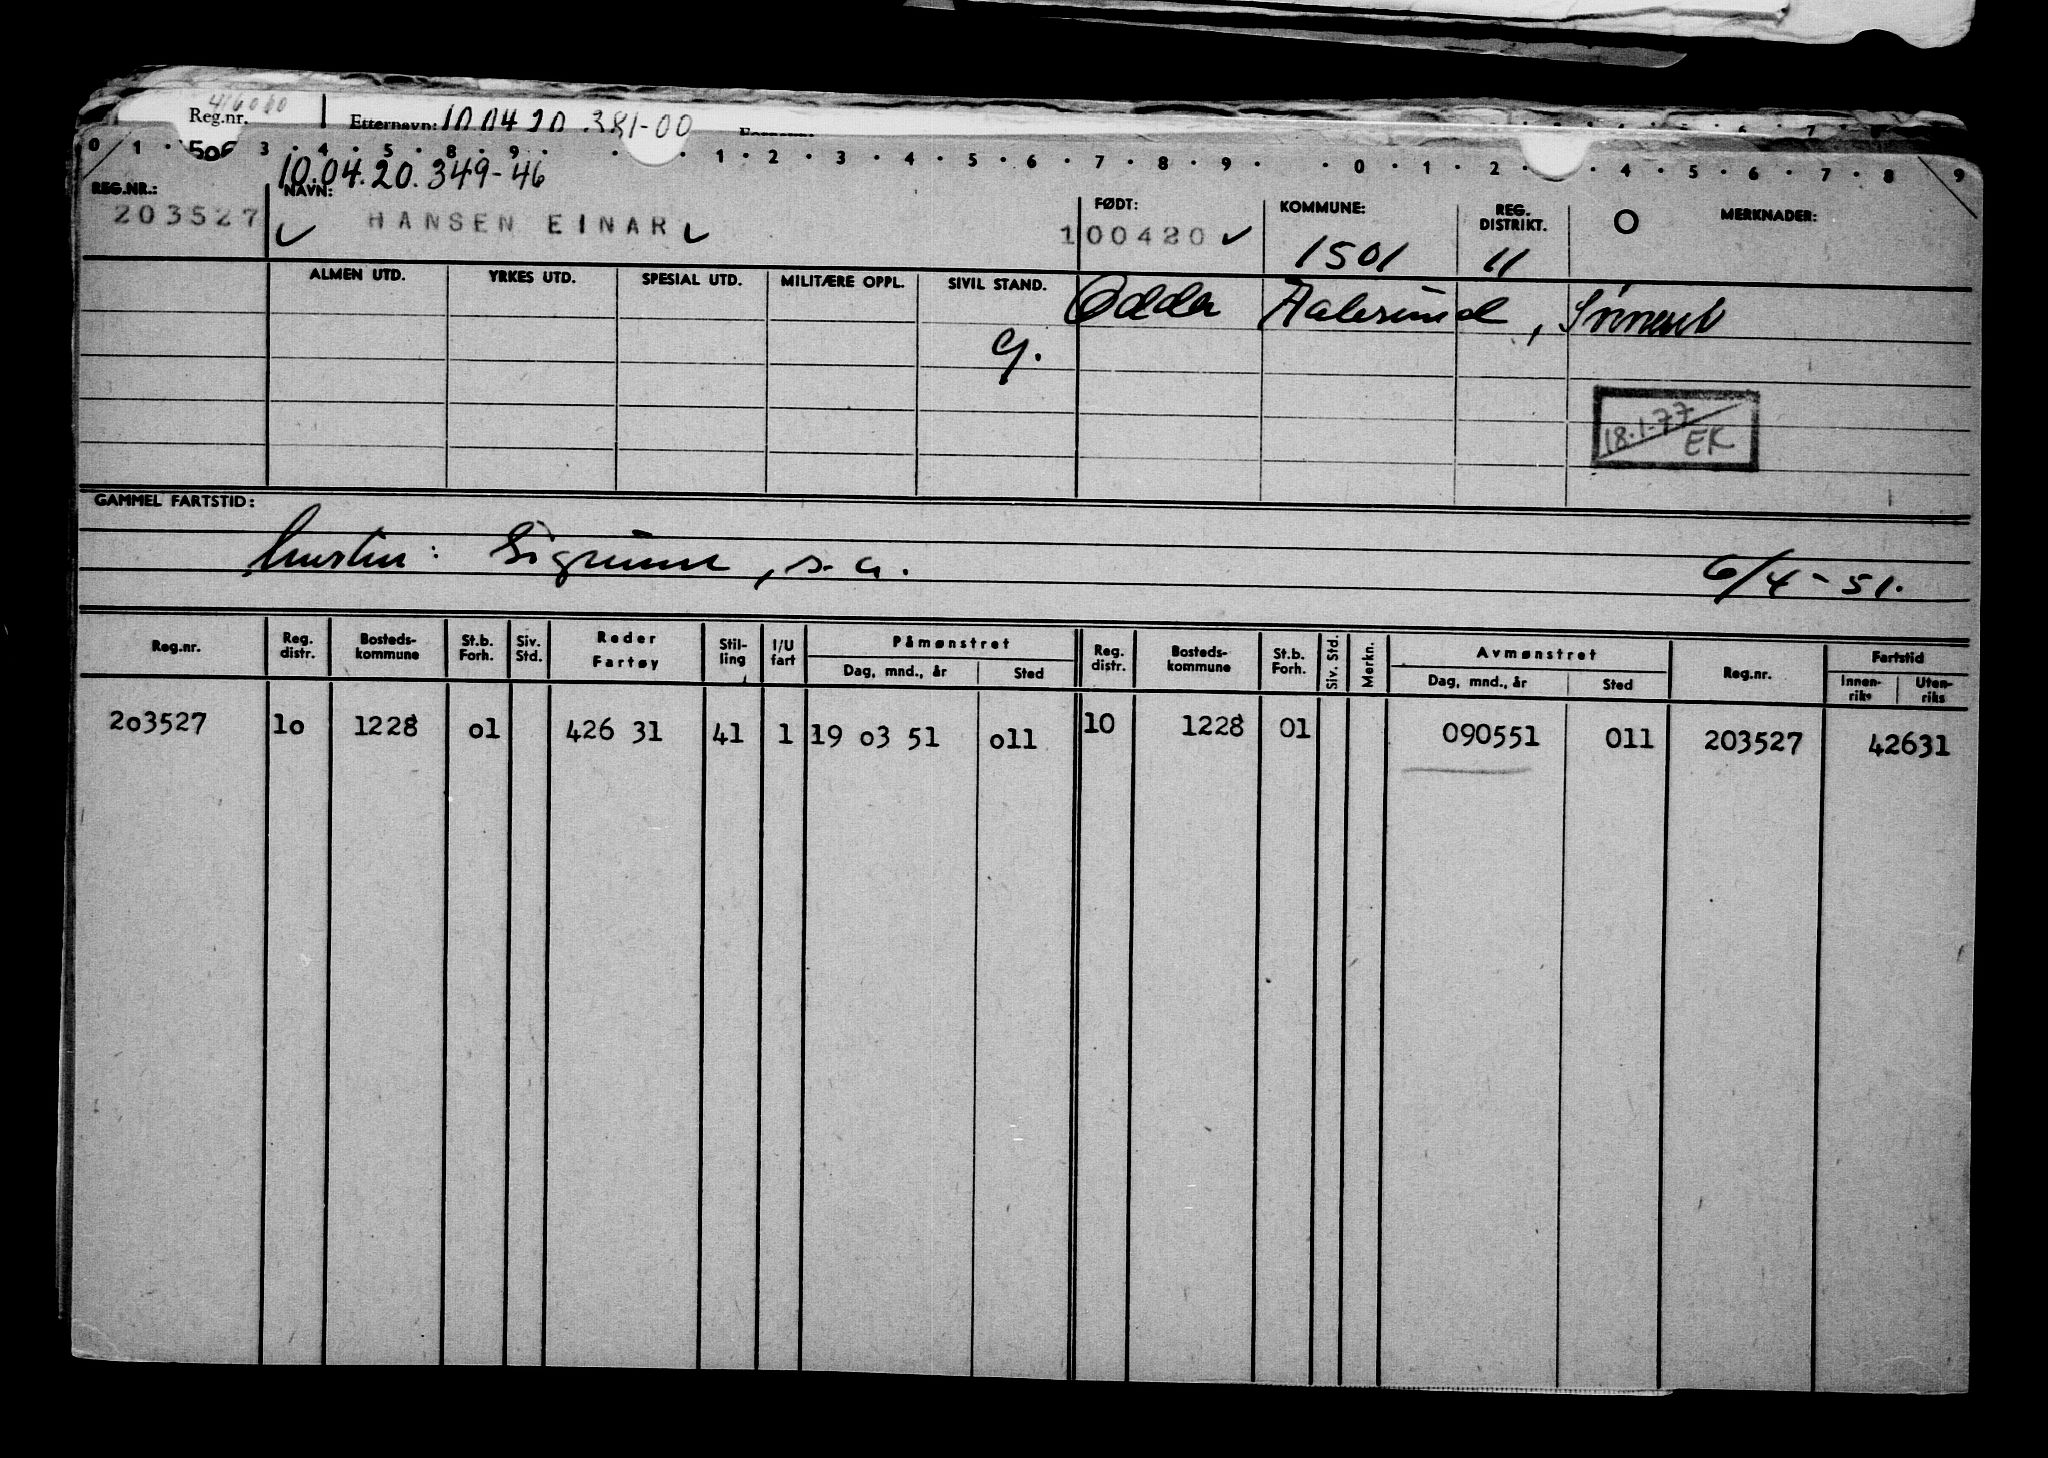 416060
Reg.nr. Etternavn: 10.04.20.381-00
506
0 1 3 4 5 8 9 1 2 3 4 5 6 7 8 9 0 1 2 4 5 6 7 8 9
10.04.20.349-46
REG.NR.: NAVN: FØDT: KOMMUNE: REG. DISTRIKT. O MERKNADER:
203527 HANSEN EINAR 100420 1501 11
ALMEN UTD. YRKES UTD. SPESIAL UTD. MILITÆRE OPPL. SIVIL STAND.
Odda Aalesund,
g.
18.1.77
EK
GAMMEL FARTSTID:
hustru: Sigrunn, s.a. 6/4-51.
Reg.nr. Reg. distr. Bosteds-kommune St.b. Forh. Siv. Std. Reder Fartøy Stil-ling I/U fart Påmønstret Reg. distr. Bosteds-kommune St.b. Forh. Siv. Std. Merkn. Avmønstret Reg.nr. Fartstid
Dag, mnd., år Sted Dag, mnd., år Sted Innen-riks Uten-riks
203527 10 1228 01 426 31 41 1 19 03 51 011 10 1228 01 090551 011 203527 42631